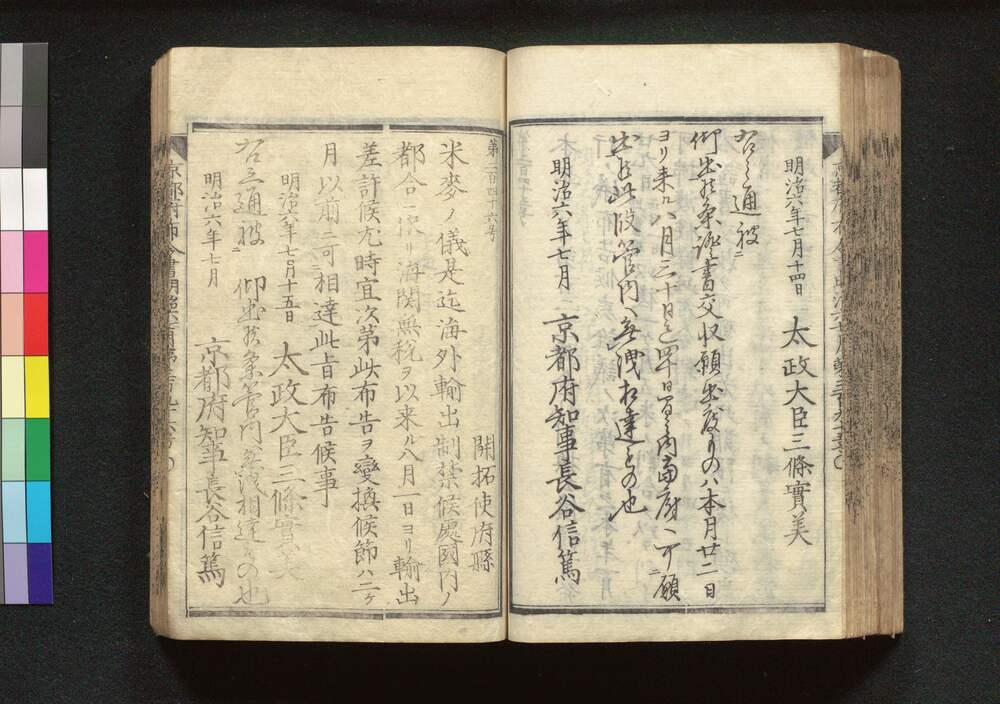 明治六年七月十四日　太政大臣三條實美
右之通被ニ
仰出候条證書交収願出度ものハ本月廿二日
ヨリ来ル八月三十日迄四十日間之内當府ヘ可ニ願
出候此段管内ヘ無洩相達もの也
明治六年七月　京都府知事長谷信篤
第二百四十六号
開拓使府縣
米麥ノ儀是迄海外輸出制禁候處國内ノ
都合ニ依リ海関無税ヲ以来ル八月一日ヨリ輸出
差許候尤時宜次第此布告ヲ變換候節ハ二ヶ
月以前ニ可ニ相達此旨布告候事
明治六年七月十五日　太政大臣三條實美
右之通被ニ　仰出候条管内無洩相達もの也
明治六年七月　京都府知事長谷信篤